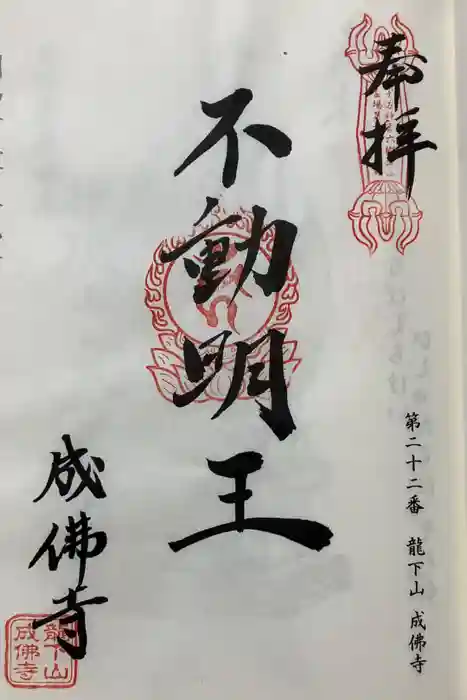 奉拝
第二十二番 龍下山 成佛寺
不動明王
成佛寺
龍下山
成佛寺